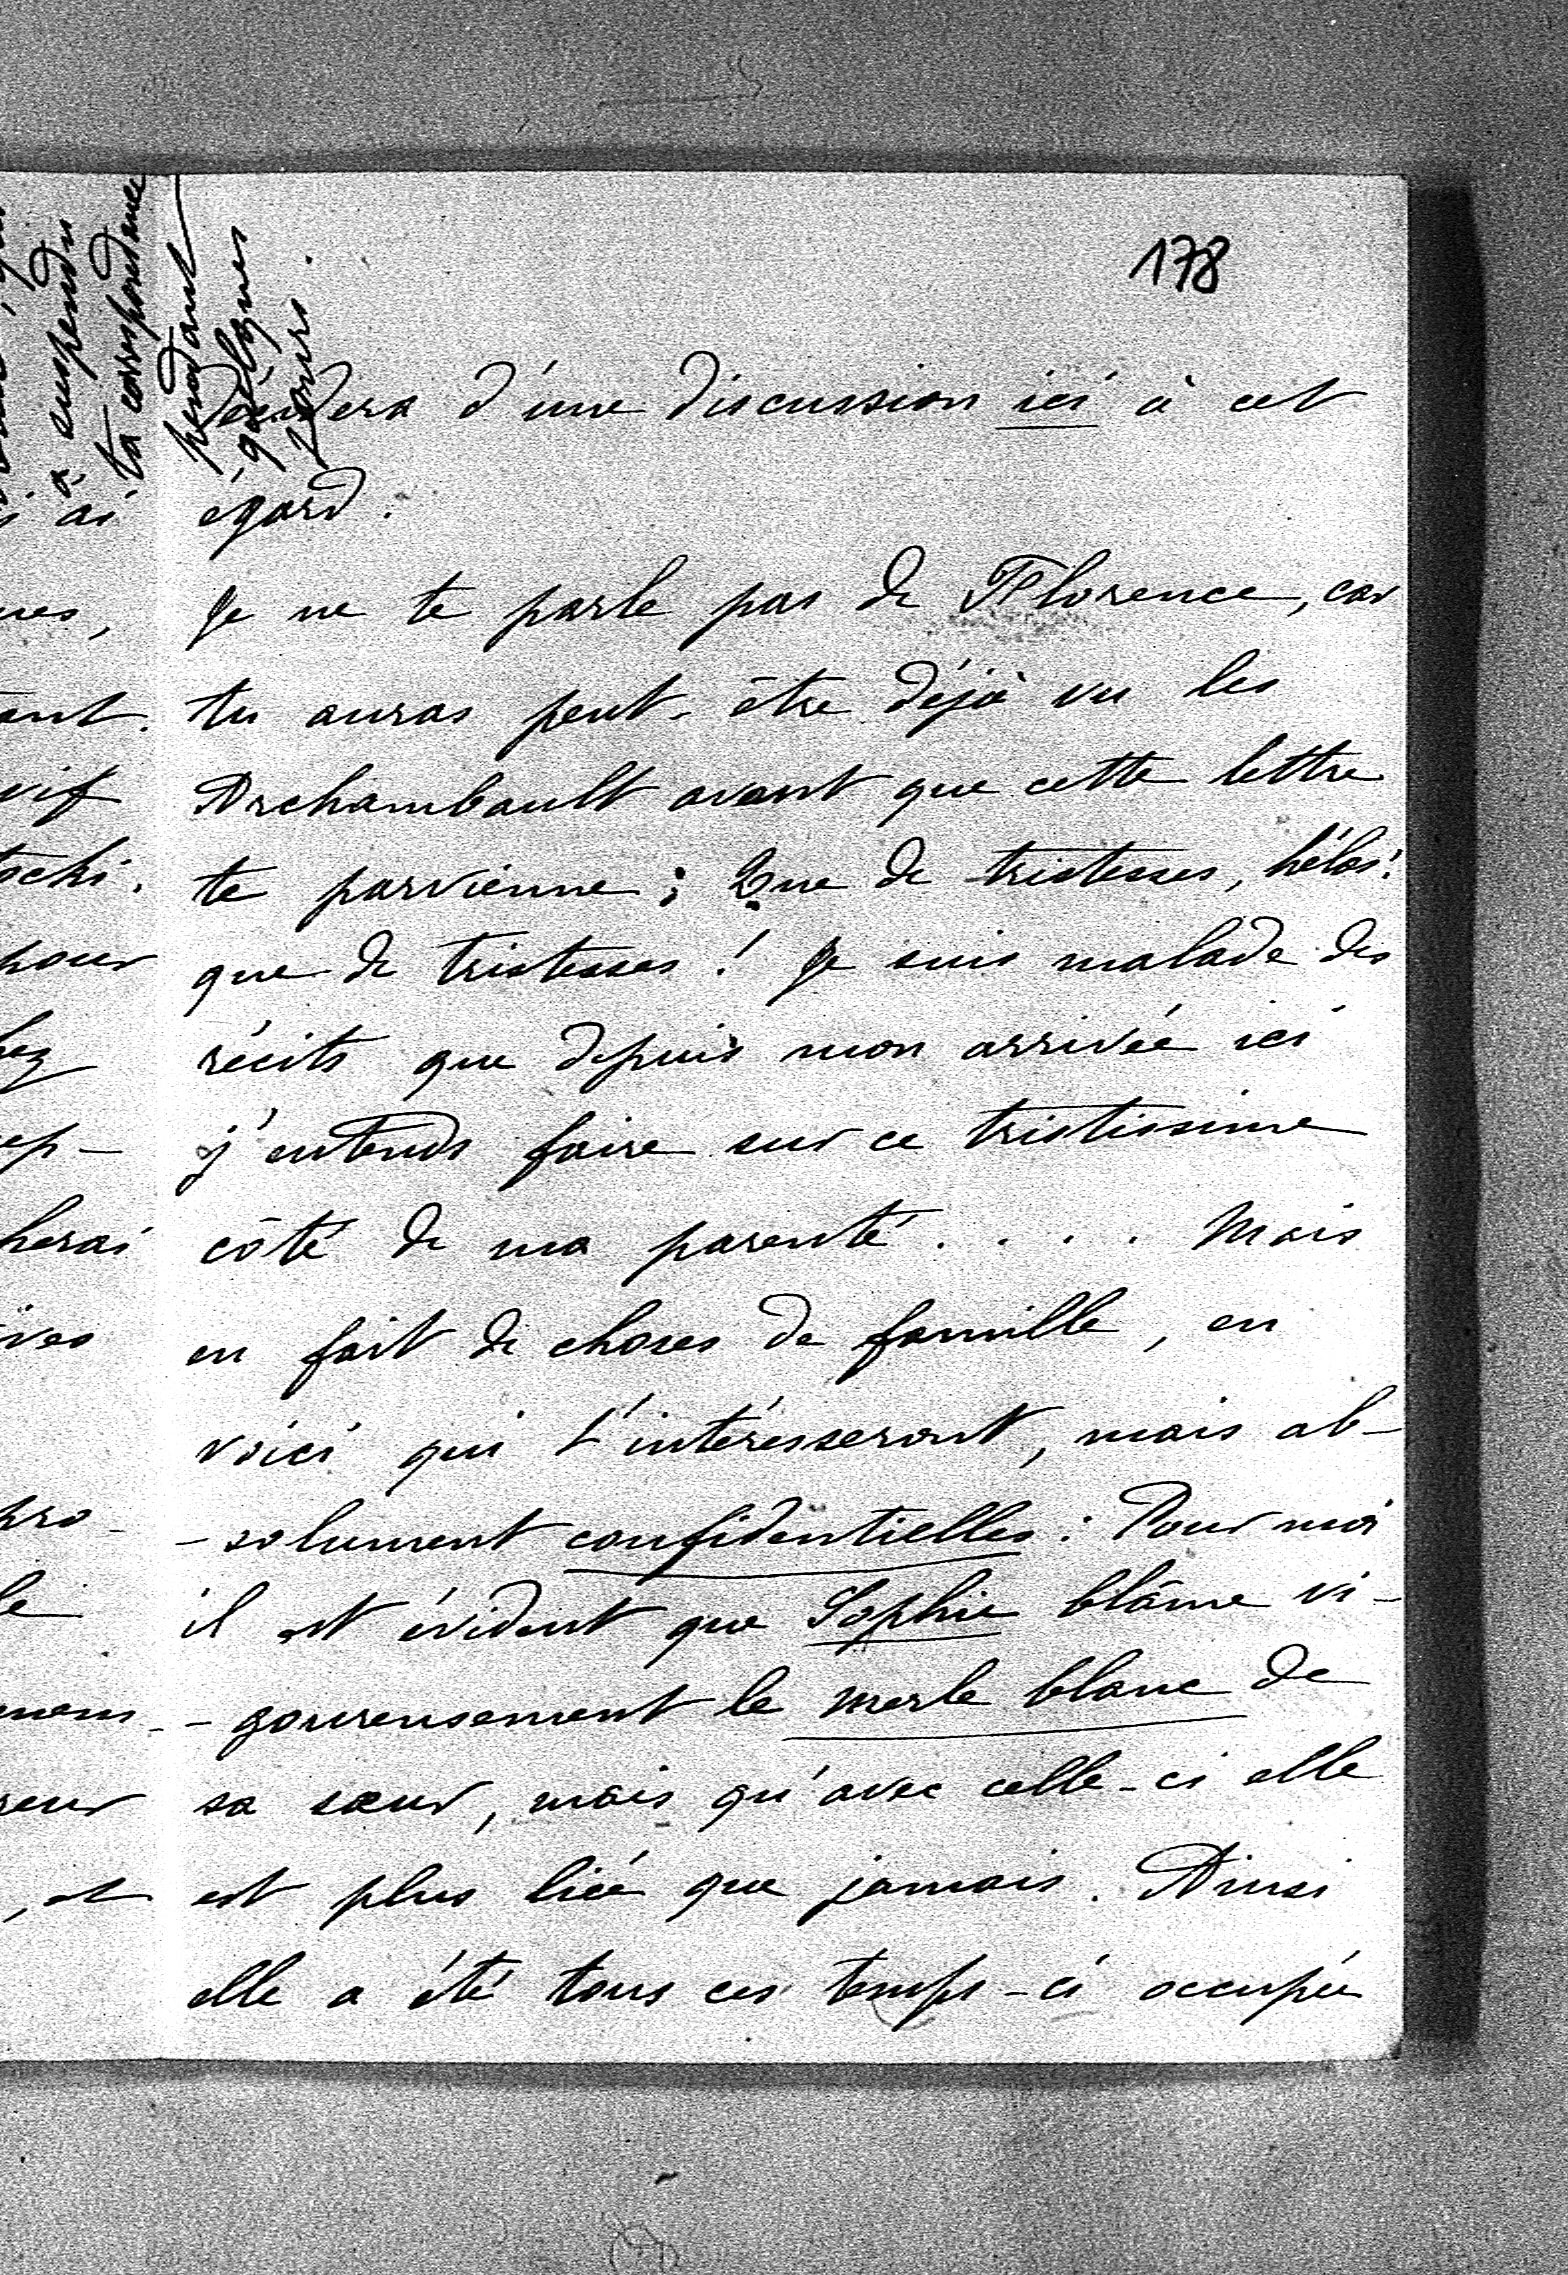 178
à suspendu
ta correspondance
pendant
quelques
jours.
d'une discussion ici à cet
égard.
Je ne te parle pas de Florence, car
tu auras peut-être déjà vu les
Archambault avant que cette lettre
te parvienne ; Que de tristesses, hélas!
que de tristesses ! Je suis malade des
récits que depuis mon arrivée ici
j'entends faire sur ce tristissime
côté de ma parenté . . . . Mais
en fait de choses de famille, en
voici qui t'intéresseront, mais ab-
-solument confidentielles : Pour moi
il est évident que Sophie blâme vi-
-goureusement le merle blanc de
sa sœur, mais qu'avec celle-ci elle
est plus liée que jamais. Ainsi
elle a été tous ces temps-ci occupée
ai
ues,
ant.
vif
tochi.
pour
hez
ep-
herai
ives
pro-
le
mem-
reur
, et